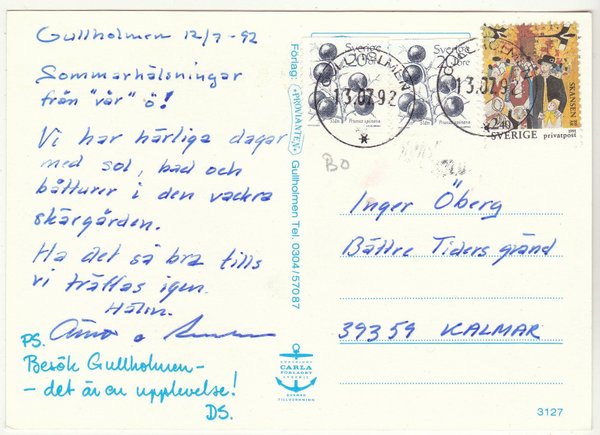 Gullholmen 12/7-92
Sommarhälsningar
från "vår" ö!
Vi har härliga dagar
med sol, bad och
båtturer i den vackra
skärgården.
Ha det så bra tills
vi träffas igen.
PS.
Besök Gullholmen -
- det är en upplevelse!
DS.
Förlag: PROVIANTEN Gullholmen Tel. 0304/57087
CARLA
FÖRLAGET
SVENSK
TILLVERKNING
Sverige
20 öre
Slån Prunus spinosa
Sverige
20 öre
Slån Prunus spinosa
GULLHOLMEN
13.07.92
GULLHOLMEN
13.07.92
SKANSEN
2.40
SVERIGE privatpost
BO
Inger Öberg
Bättre Tiders gränd
39359 KALMAR
3127